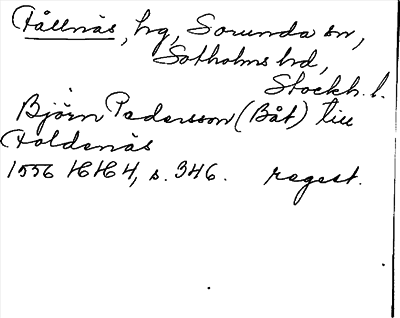 Fållnäs, hg, Sorunda sn,
Sotholms hd,
Stockh. l.
Björn Pedersson (Båt) till
Foldenäs
1556 HH 4, s. 346. regest.